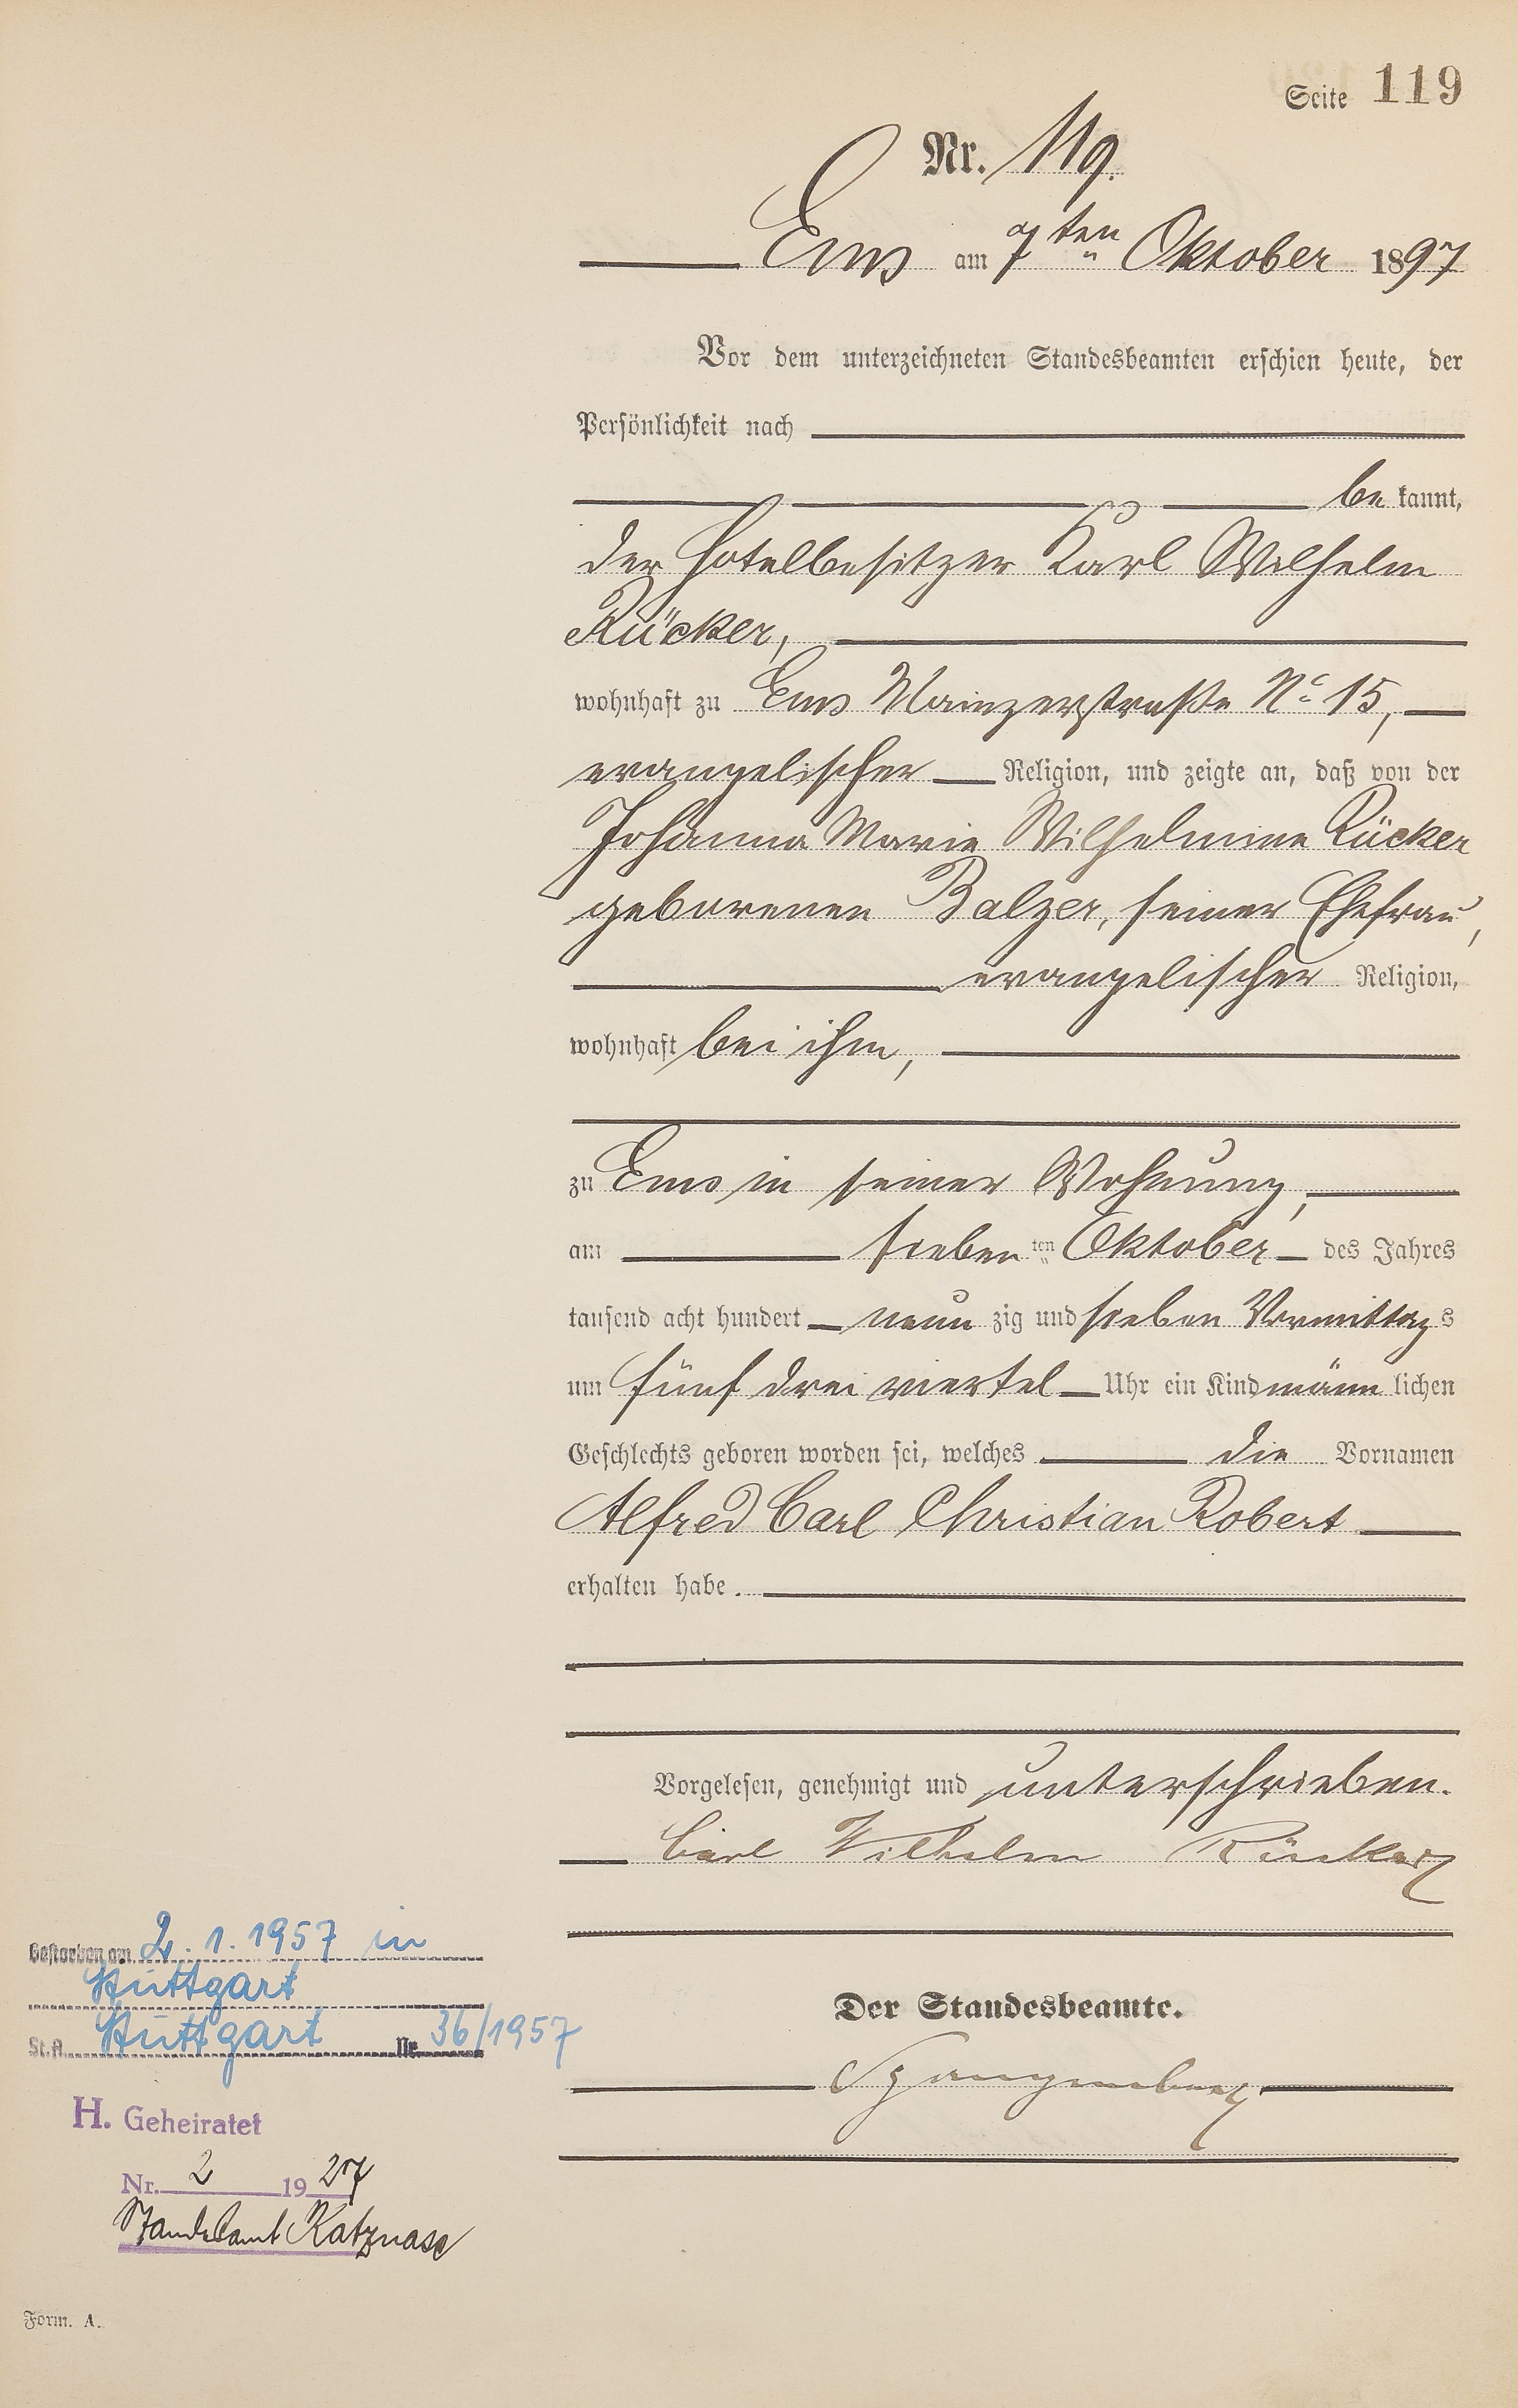 Seite 119
Nr. 119.
Ems am 7ten Oktober 1897
Vor dem unterzeichneten Standesbeamten erschien heute, der
Persönlichkeit nach
be kannt,
der Hotelbesitzer Karl Wilhelm
Rücker,
wohnhaft zu Ems Mainzerstraße No 15,
evangelischer Religion, und zeigte an, daß von der
Johanna Marie Wilhelmine Rücker
geborenen Balzer, seiner Ehefrau,
evangelischer Religion,
wohnhaft bei ihm,
zu Ems in seiner Wohnung,
am sieben ten Oktober des Jahres
tausend acht hundert neun zig und sieben Vormittag s
um fünf drei viertel Uhr ein Kind männ lichen
Geschlechts geboren worden sei, welches die Vornamen
Alfred Carl Christian Robert
erhalten habe.
Vorgelesen, genehmigt und unterschrieben.
Carl Wilhelm Rücker
Der Standesbeamte.
Spangenberg
Gestorben am 2. 1. 1957 in
Stuttgart
St.A. Stuttgart Nr. 36/1957
H. Geheiratet
Nr. 2 1927
Standesamt
Form. A.